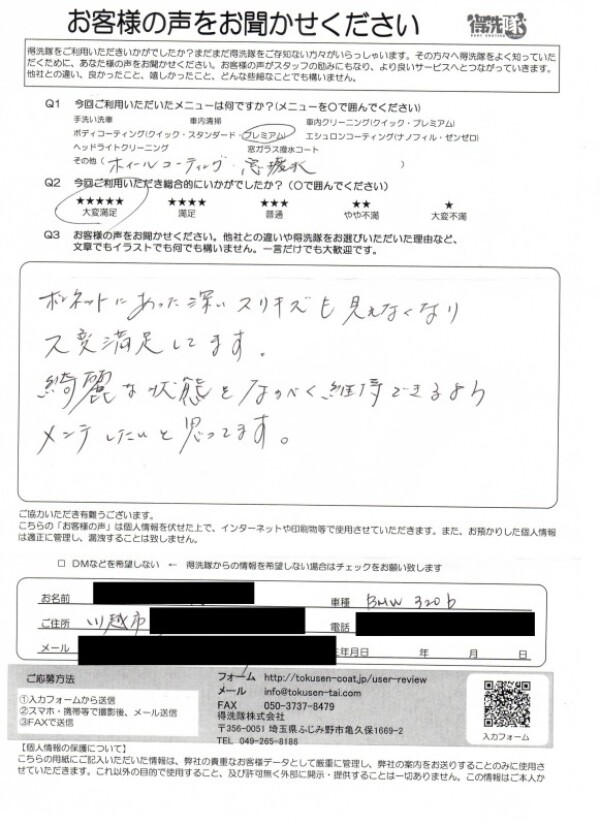 お客様の声をお聞かせください
得洗隊
得洗隊をご利用いただきいかがでしたか?まだまだ得洗隊をご存知ない方々がいらっしゃいます。その方々へ得洗隊をよく知っていた
だくために、あなた様の声をお聞かせください。お客様の声がスタッフの励みにもなり、より良いサービスへとつながっていきます。
他社との違い、良かったこと、嬉しかったこと、どんな些細なことでも構いません。
Q1 今回ご利用いただいたメニューは何ですか?(メニューを〇で囲んでください)
手洗い洗車 車内清掃 車内クリーニング(クイック・プレミアム)
ボディコーティング(クイック・スタンダード・プレミアム) エシュロンコーティング(ナノフィル・ゼンゼロ)
ヘッドライトクリーニング 窓ガラス撥水コート
その他(ホイールコーティング・窓撥水)
Q2 今回ご利用いただき総合的にいかがでしたか?(〇で囲んでください)
★★★★★ ★★★★ ★★★ ★★ ★
大変満足 満足 普通 やや不満 大変不満
Q3 お客様の声をお聞かせください。他社との違いや得洗隊をお選びいただいた理由など、
文章でもイラストでも何でも構いません。一言だけでも大歓迎です。
ボンネットにあった深いスリキズも見えなくなり
大変満足してます。
綺麗な状態をなるべく維持できるよう
メンテしたいと思ってます。
ご協力いただき有難うございます。
こちらの「お客様の声」は個人情報を伏せた上で、インターネットや印刷物等で使用させていただきます。また、お預かりした個人情報
は適正に管理し、漏洩することは致しません。
□ DMなどを希望しない ← 得洗隊からの情報を希望しない場合はチェックをお願い致します
お名前 車種 BMW 320b
ご住所 川越市 電話
メール 年月日 年 月 日
ご応募方法
①入力フォームから送信
②スマホ・携帯等で撮影後、メール送信
③FAXで送信
フォーム http://tokusen-coat.jp/user-review
メール info@tokusen-tai.com
FAX 050-3737-8479
得洗隊株式会社
〒356-0051 埼玉県ふじみ野市亀久保1669-2
TEL 049-265-8188
入力フォーム
【個人情報の保護について】
こちらの用紙にご記入いただいた情報は、弊社の貴重なお客様データとして厳重に管理し、弊社の案内をお送りすることのみに使用さ
せていただきます。これ以外の目的で使用すること、及び許可無く外部に開示・提供することは一切ありません。この情報はご本人か